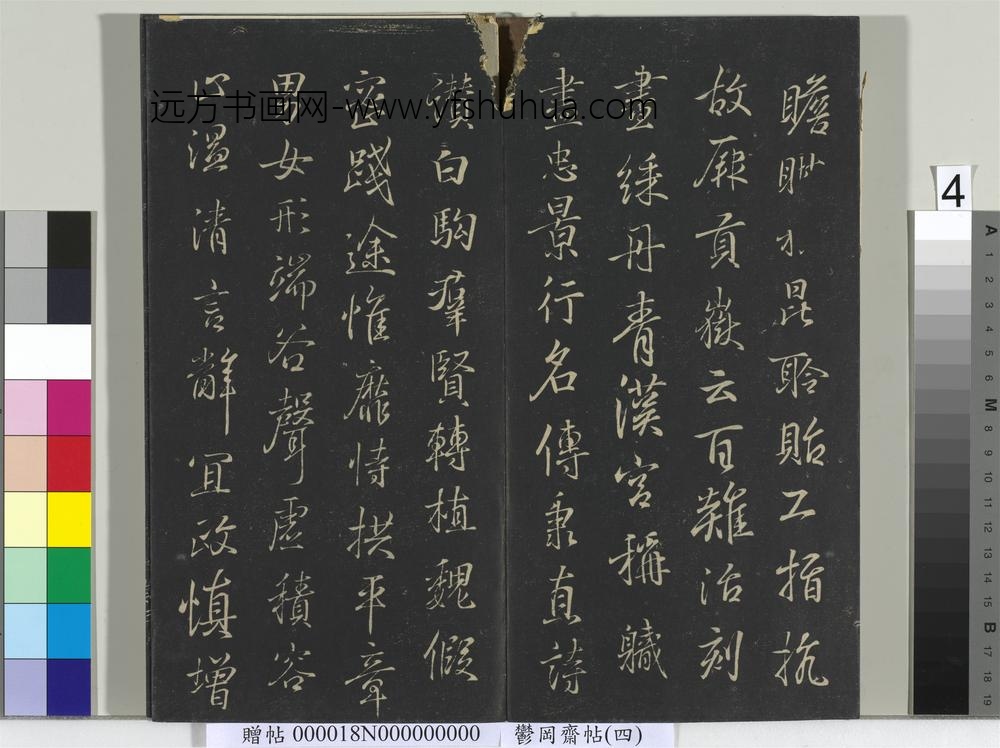 瞻昆聆貽工指執
故厥貢嶽云百雜活刻
畫綵丹青漢宮稱職
盡忠景行名傳秉直詩
讚白駒羣賢轉植魏假
密踐途惟靡恃拱平章
男女形端谷聲虛積容
止溫清言辭宜政慎增
远方书画网-www.yfshuhua.com
4
贈帖 000018N000000000 鬱岡齋帖(四)
A 1 2 3 4 5 6 M 8 9 10 11 12 13 14 15 B 17 18 19